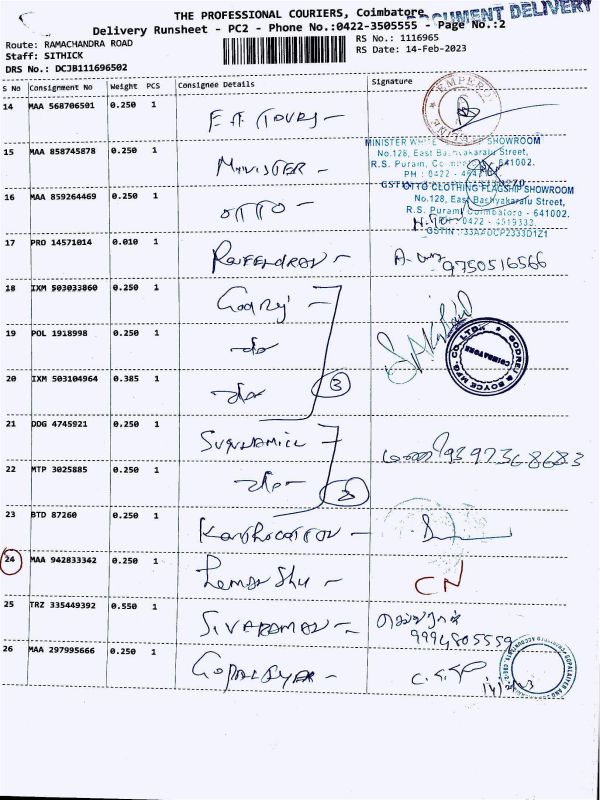 THE PROFESSIONAL COURIERS, Coimbatore
DOCUMENT DELIVERY
Delivery Runsheet - PC2 - Phone No.:0422-3505555 - Page No.:2
Route: RAMACHANDRA ROAD
RS No.: 1116965
Staff: SITHICK
RS Date: 14-Feb-2023
DRS No.: DCJB111696502
S No Consignment No Weight PCS Consignee Details Signature
14 MAA 568706501 0.250 1
EMPEROR
15 MAA 858745878 0.250 1 MINISTER -
MINISTER WHITE FLAGSHIP SHOWROOM
No.128, East Bashyakaralu Street,
R.S. Puram, Coimbatore - 641002.
PH : 0422 -
16 MAA 859264469 0.250 1 OTTO -
OTTO CLOTHING FLAGSHIP SHOWROOM
No.128, East Bashyakaralu Street,
R.S. Puram, Coimbatore - 641002.
0422 - 4519333
GSTIN : 33
17 PRO 14571014 0.010 1 RAJENDRAN - 9750516566
18 IXM 503033860 0.250 1 Godrej -
GODREJ & BOYCE MFG. CO. LTD.,
COIMBATORE
19 POL 1918998 0.250 1 -do-
20 IXM 503104964 0.385 1 -do- 3
21 DDG 4745921 0.250 1
9397368683
22 MTP 3025885 0.250 1 -do-
23 BTD 87260 0.250 1
24 MAA 942833342 0.250 1 CN
25 TRZ 335449392 0.550 1 SIVARAMAN -
9994805559
26 MAA 297995666 0.250 1 GOPALAIYER -